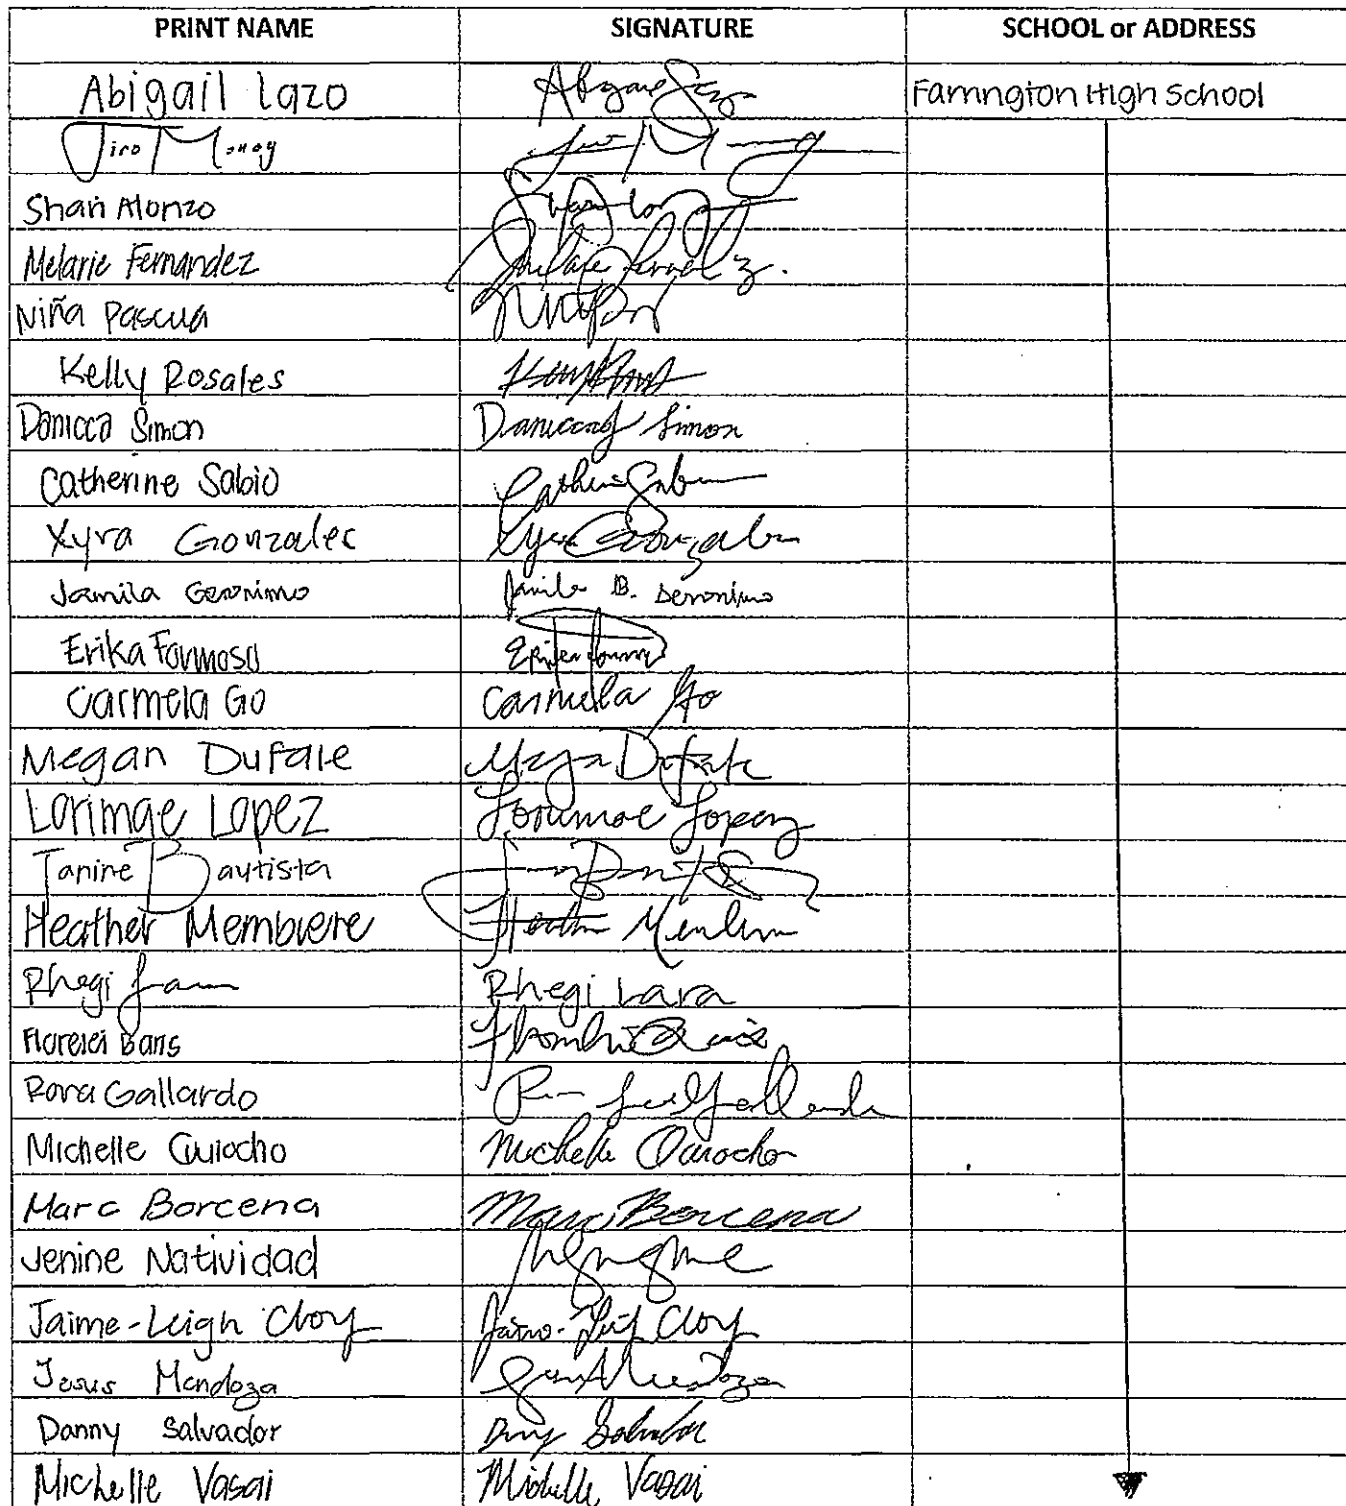 PRINT NAME SIGNATURE SCHOOL or ADDRESS
Abigail Lazo Farrington High School
Jiro
Shan Alonzo
Melanie Fernandez
Niña Pascua
Kelly Rosales
Danicca Simon Danicca Simon
Catherine Sabio
Xyra Gonzales Xyra Gonzales
Jamila Geronimo Jamila B. Geronimo
Erika Formoso
Carmela Go Carmela Go
Megan Dufale Megan Dufale
Lorimae Lopez Lorimae Lopez
Janine Bautista
Heather Membrere Heather
Rhegi Lara Rhegi Lara
Rona Gallardo Gallardo
Michelle Quiocho Michelle Quiocho
Marc Borcena Marc Borcena
Jenine Natividad
Jaime-Leigh Choy Choy
Jesus Mendoza Mendoza
Danny Salvador
Michelle Vasai Michelle Vasai